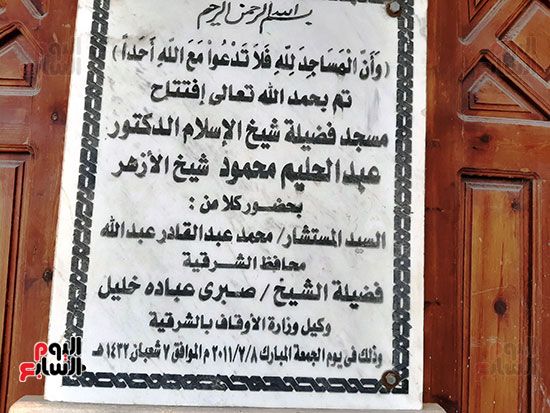 بسم الله الرحمن الرحيم
(وَأَنَّ الْمَسَاجِدَ لِلَّهِ فَلَا تَدْعُوا مَعَ اللَّهِ أَحَدًا)
تم بحمد الله تعالى إفتتاح
مسجد فضيلة شيخ الإسلام الدكتور
عبد الحليم محمود شيخ الأزهر
بحضور كلا من :
السيد المستشار/ محمد عبد القادر عبد الله
محافظ الشرقية
فضيلة الشيخ / صبرى عباده خليل
وكيل وزارة الأوقاف بالشرقية
وذلك فى يوم الجمعة المبارك ٢٠١١/٧/٨ م الموافق ٧ شعبان ١٤٣٢ هـ
اليوم السابع